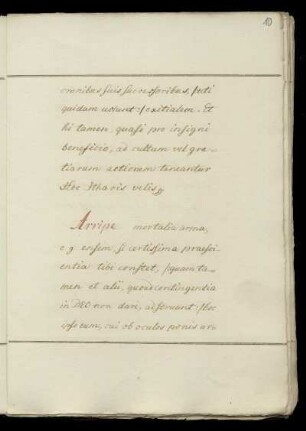 10
omnibus suis successoribus, /: uti
quidam uterunt :/ exitialem. Et
hi tamen, quasi pro insigni
beneficio, ad cultum vel gra-
tiarum actionem teneantur
Hoc Itharis velis
Arripe mortalia arma,
e.g. ensem, si certissima praesci-
entia tibi constet, /: quam ta-
men et alii, quod contingentia
in DEO non dari, asseruant :/ hoc
ipsi eum, cui ob oculos ponis ar-